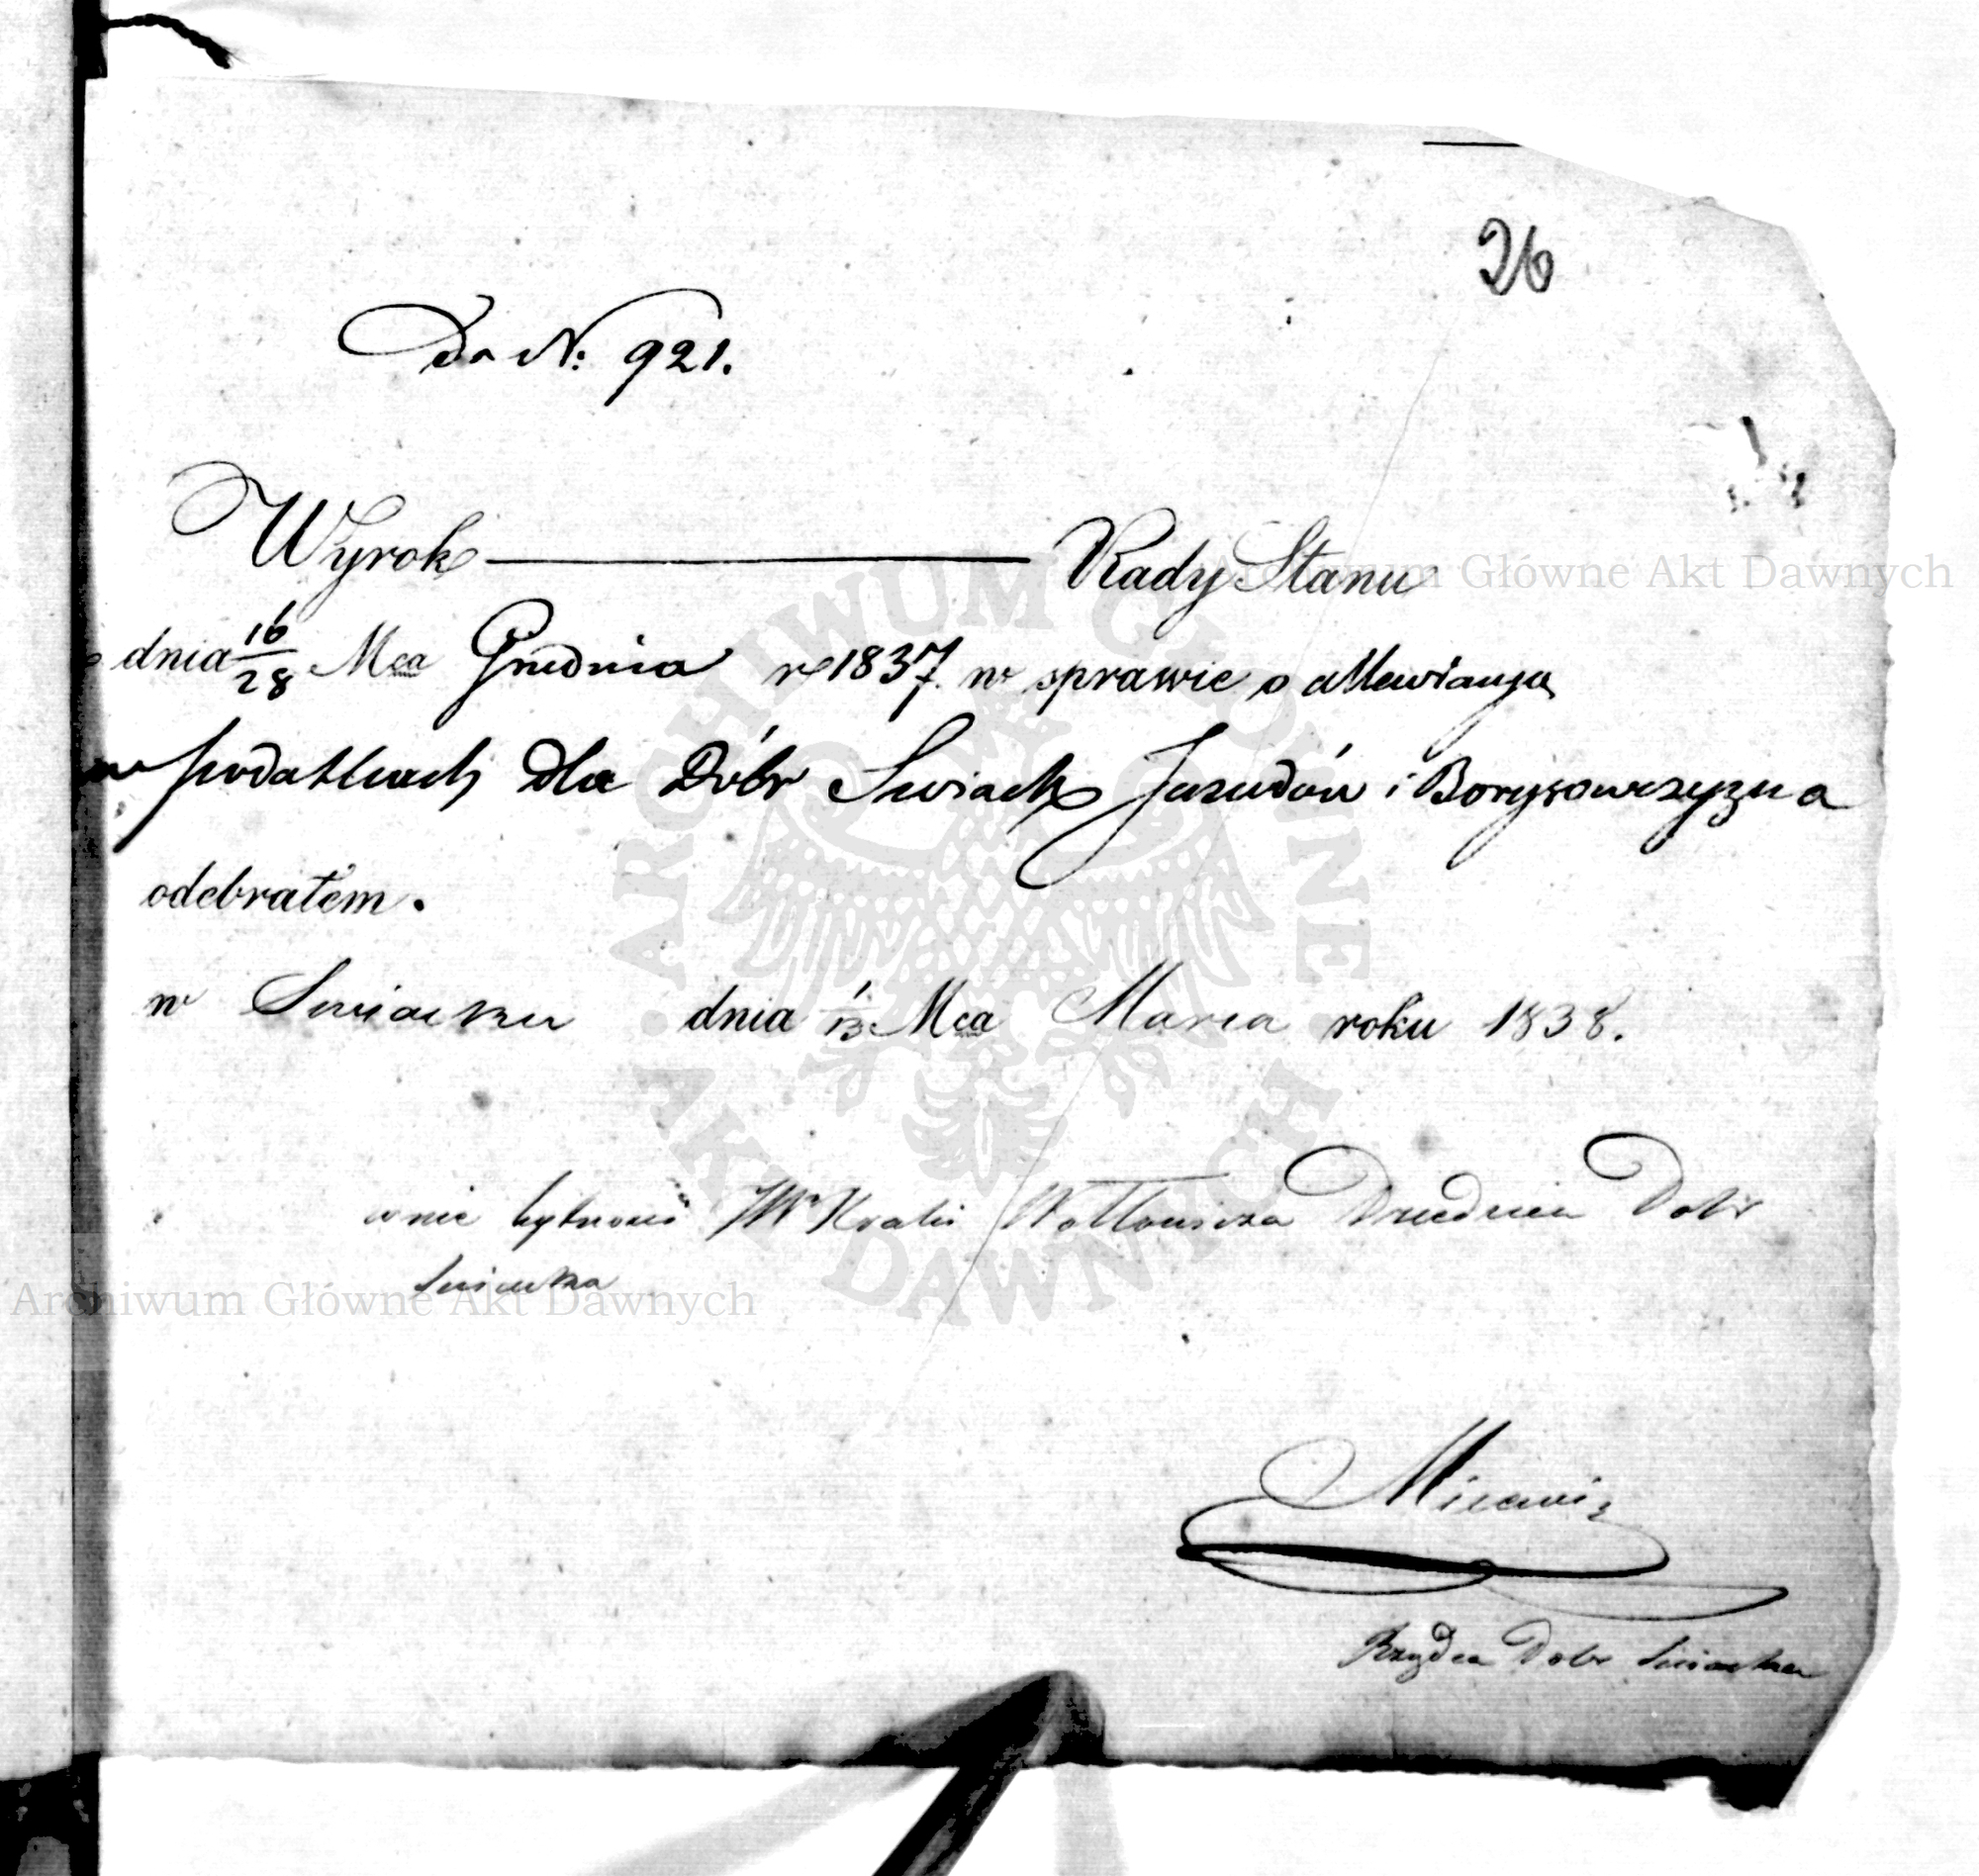 26
Do N: 921.
Wyrok Rady Stanu
dnia 16/28 Mca Grudnia r 1837 w sprawie o allewiancyą
w podatkach dla Dóbr Swiack Jasudów i Borysowszyzna
odebrałem.
w Swiacku dnia 1/13 Mca Marca roku 1838.
w nie bytności JW Wołłowicza Dziedzica Dobr
Swiacka
Rządca Dobr Swiacka
ARCHIWUM GŁÓWNE AKT DAWNYCH
Archiwum Główne Akt Dawnych
Archiwum Główne Akt Dawnych